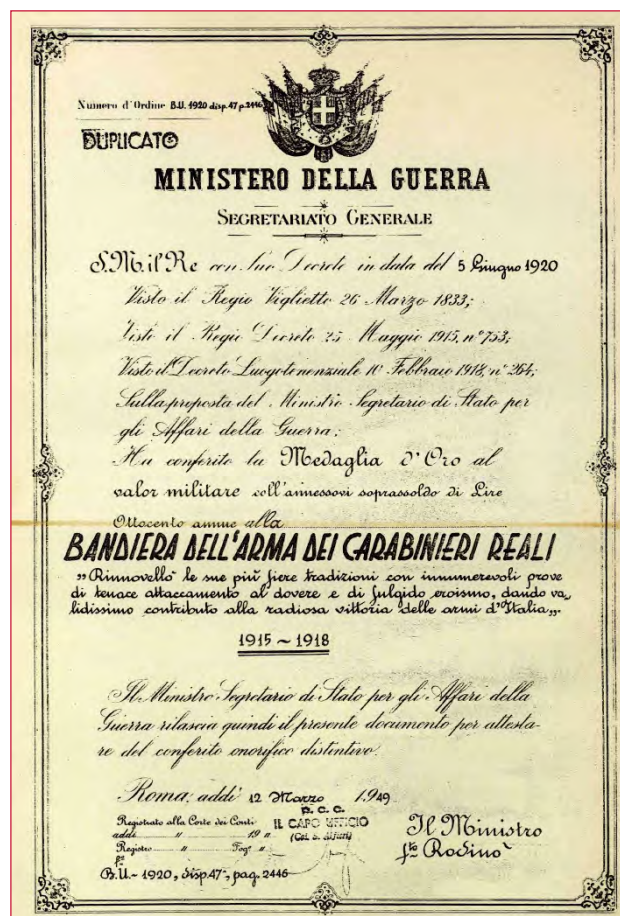 Numero d'Ordine B.U. 1920 disp. 47 p. 2446
DUPLICATO
MINISTERO DELLA GUERRA
SEGRETARIATO GENERALE
S.M. il Re con Suo Decreto in data del 5 Giugno 1920
Visto il Regio Viglietto 26 Marzo 1833;
Visto il Regio Decreto 25 Maggio 1915, n° 753;
Visto il Decreto Luogotenenziale 10 Febbraio 1918, n° 264;
Sulla proposta del Ministro Segretario di Stato per
gli Affari della Guerra;
Ha conferito la Medaglia d'Oro al
valor militare coll'annessovi soprassoldo di Lire
Ottocento annue alla
BANDIERA DELL'ARMA DEI CARABINIERI REALI
„Rinnovellò le sue più fiere tradizioni con innumerevoli prove
di tenace attaccamento al dovere e di fulgido eroismo, dando va„
lidissimo contributo alla radiosa vittoria delle armi d'Italia„.
1915 ~ 1918
Il Ministro Segretario di Stato per gli Affari della
Guerra rilascia quindi il presente documento per attesta-
re del conferito onorifico distintivo.
Roma, addì 12 Marzo 1949
p.c.c.
Registrato alla Corte dei Conti IL CAPO UFFICIO
addì " 19 " (Col. s.
Registro " Fog° "
f.°
B.U.- 1920, disp. 47ª, pag. 2446
Il Ministro
f.to Rodinò